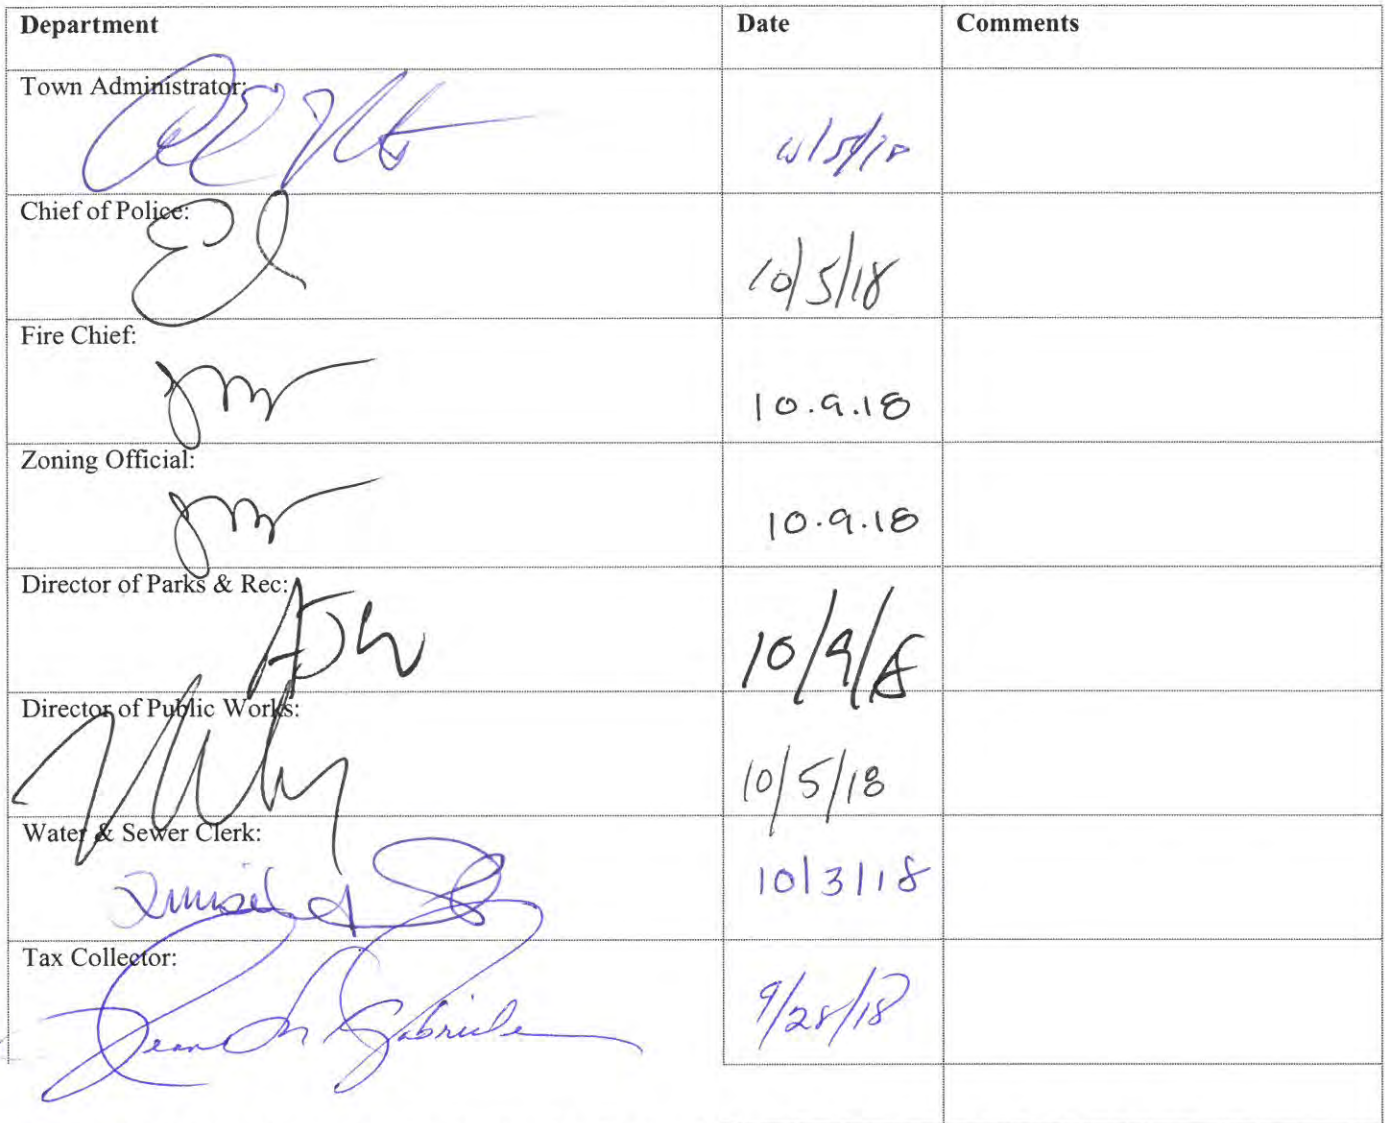 Department Date Comments
Town Administrator:
Chief of Police:
10/5/18
Fire Chief:
10.9.18
Zoning Official:
10.9.18
Director of Parks & Rec:
10/9/18
Director of Public Works:
10/5/18
Water & Sewer Clerk:
10/3/18
Tax Collector:
9/28/18